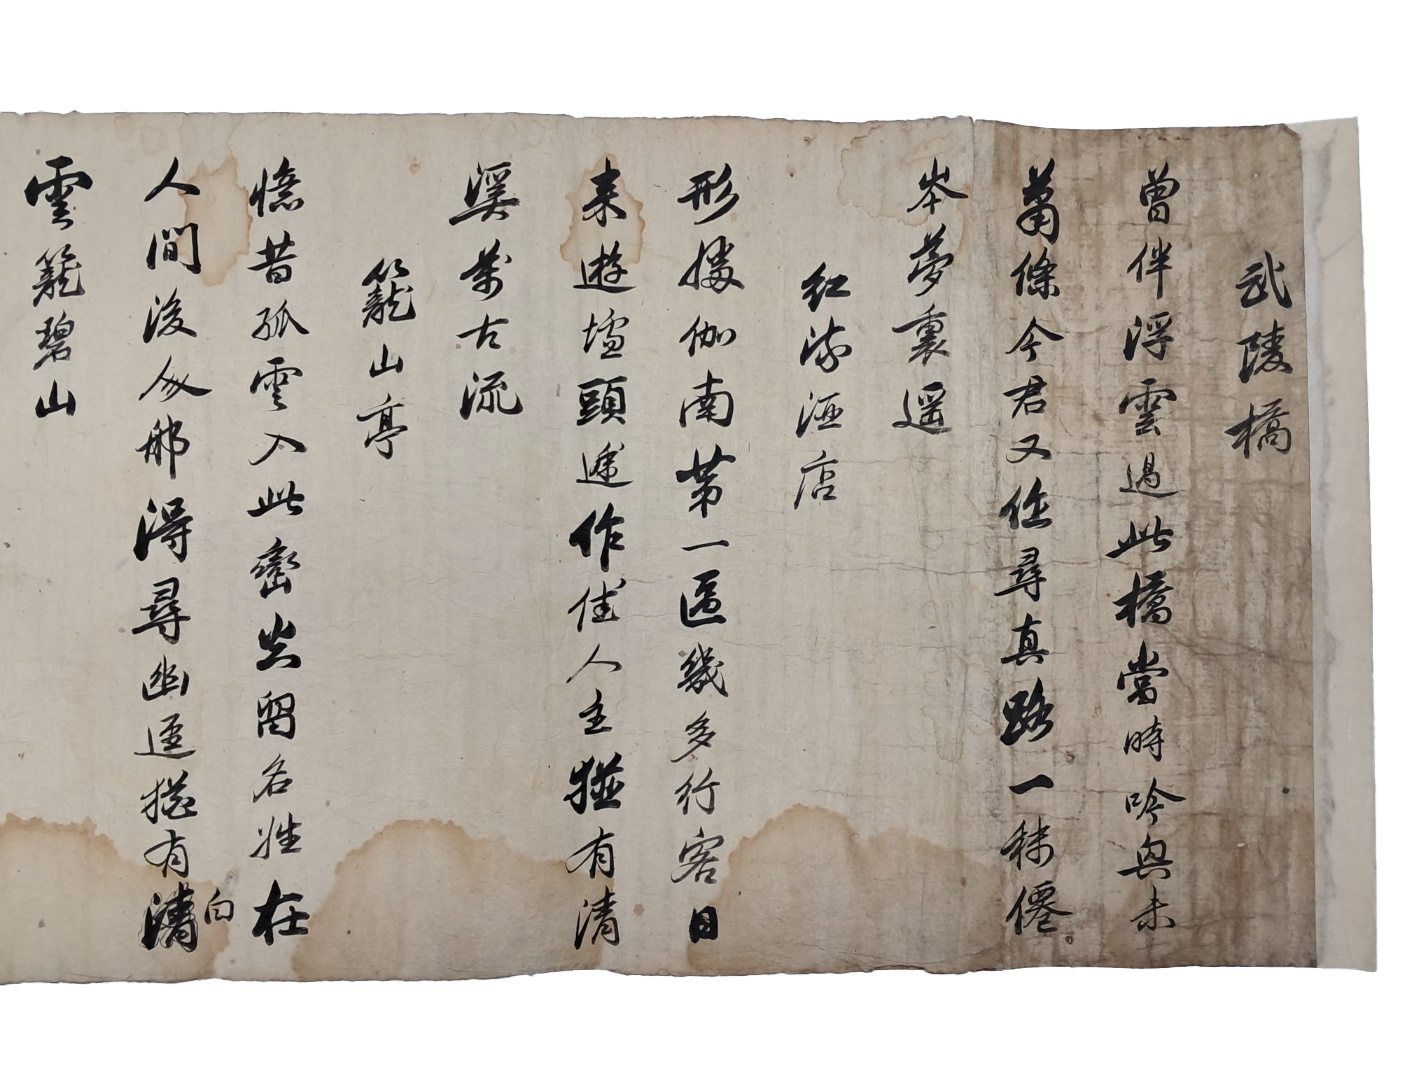 武陵橋
曾伴浮雲過此橋當時吟興未
蕭條今君又任尋真路一抹僊
岑夢裏遥
紅流酒店
形勝伽南第一區幾多行客日
来遊壚頭遞作佳人主猶有清
溪萬古流
籠山亭
憶昔孤雲入此巒豈留名姓在
人間後那得尋幽逕猶有清白
雲籠碧山